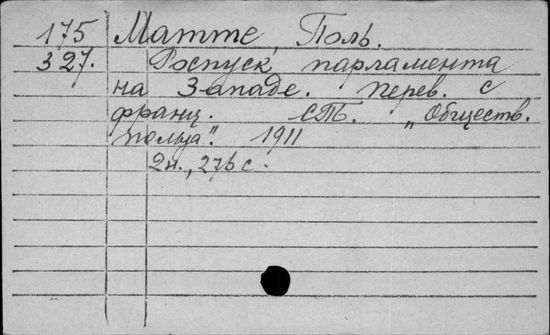 175 Матте, Поль.
327. Роспуск парламента
на Западе. Перев. с
франц. СПБ. „Обществ.
польза". 1911
2н., 276 с.